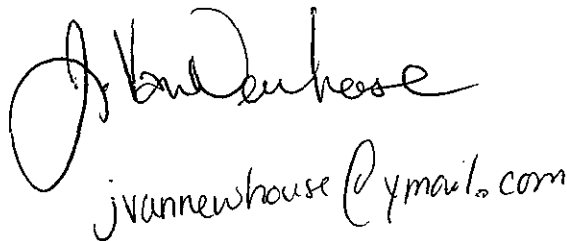 J. VanNewhouse
jvannewhouse@ymail.com